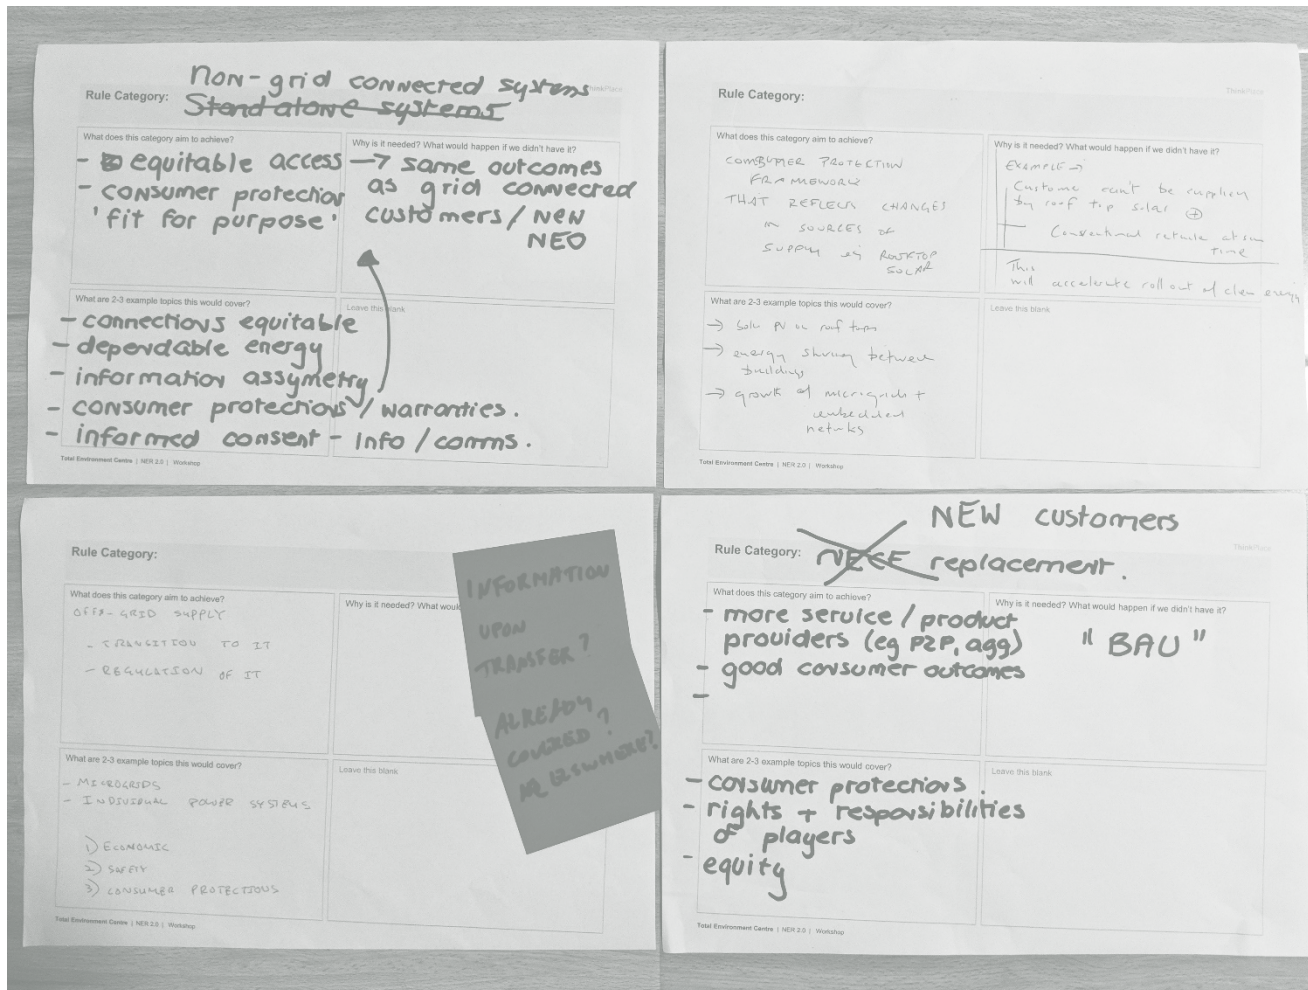 Non-grid connected systems
ThinkPlace
Rule Category: Stand alone systems
What does this category aim to achieve?
- equitable access
- consumer protection
'fit for purpose'
Why is it needed? What would happen if we didn't have it?
→ same outcomes
as grid connected
customers / NEW
NEO
What are 2-3 example topics this would cover?
- connections equitable
- dependable energy
- information assymetry
- consumer protections / warranties.
- informed consent - info / comms.
Leave this blank
Total Environment Centre | NER 2.0 | Workshop
Rule Category:
ThinkPlace
What does this category aim to achieve?
CONSUMER PROTECTION
FRAMEWORK
THAT REFLECTS CHANGES
IN SOURCES OF
SUPPLY eg ROOFTOP
SOLAR
Why is it needed? What would happen if we didn't have it?
EXAMPLE →
Customer can't be supplied
by roof top solar +
Conventional retailer at same
time
This
will accelerate roll out of clean energy
What are 2-3 example topics this would cover?
→ Solar PV on roof tops
→ energy sharing between
buildings
→ growth of microgrids +
embedded
networks
Leave this blank
Total Environment Centre | NER 2.0 | Workshop
Rule Category:
What does this category aim to achieve?
OFF-GRID SUPPLY
- TRANSITION TO IT
- REGULATION OF IT
Why is it needed? What woul
INFORMATION
UPON
TRANSFER?
ALREADY
COVERED?
ELSEWHERE?
What are 2-3 example topics this would cover?
- MICROGRIDS
- INDIVIDUAL POWER SYSTEMS
1) ECONOMIC
2) SAFETY
3) CONSUMER PROTECTIONS
Leave this blank
Total Environment Centre | NER 2.0 | Workshop
NEW customers
ThinkPlace
Rule Category: NECF replacement.
What does this category aim to achieve?
- more service / product
providers (eg P2P, agg)
- good consumer outcomes
-
Why is it needed? What would happen if we didn't have it?
"BAU"
What are 2-3 example topics this would cover?
- consumer protections.
- rights + responsibilities
of players
- equity
Leave this blank
Total Environment Centre | NER 2.0 | Workshop